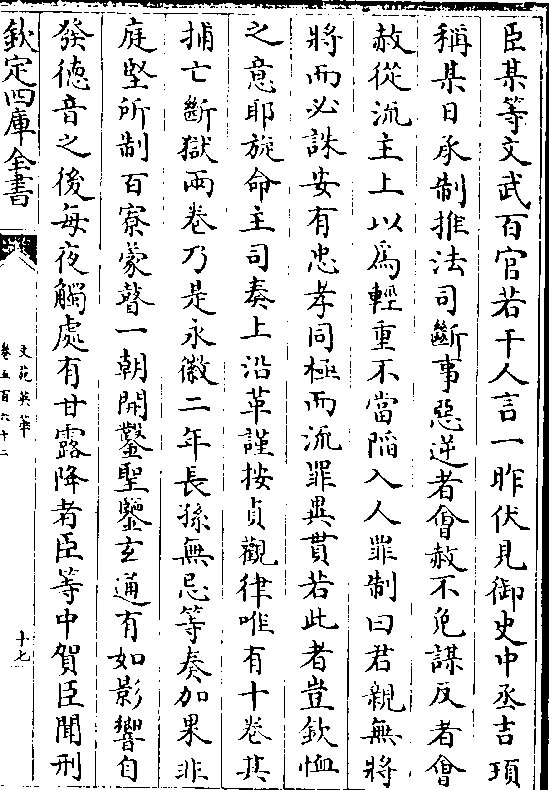 臣某等文武百官若干人言一昨伏見御史中丞吉頊
稱某日承制推法司斷事惡逆者會赦不免謀反者會
赦從流主上以爲輕重不當陷入人罪制曰君親無將
將而必誅安有忠孝同極而流罪異貫若此者豈欽恤
之意耶旋命主司奏上沿革謹按貞觀律唯有十卷其
捕亡斷獄兩卷乃是永徽二年長孫無忌等奏加果非
庭堅所制百寮蒙瞽一朝開鑿聖鑒玄通有如影響自
發德音之後每夜觸處有甘露降者臣等中賀臣聞刑
欽定四庫全書
文苑英華
卷五百六十二
十七